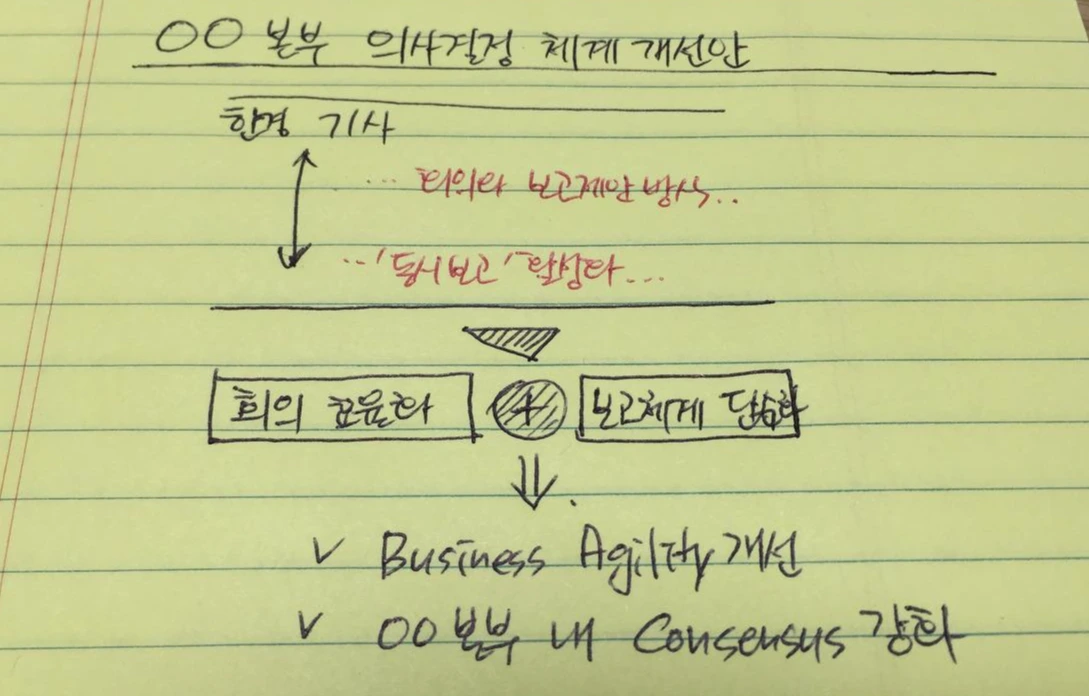 OO 본부 의사결정 체계 개선안
한경 기사
... 회의와 보고제안 방식..
...'동시보고' 활성화...
회의 효율화 + 보고체계 단순화
v Business Agility 개선
v OO 본부 내 Consensus 강화